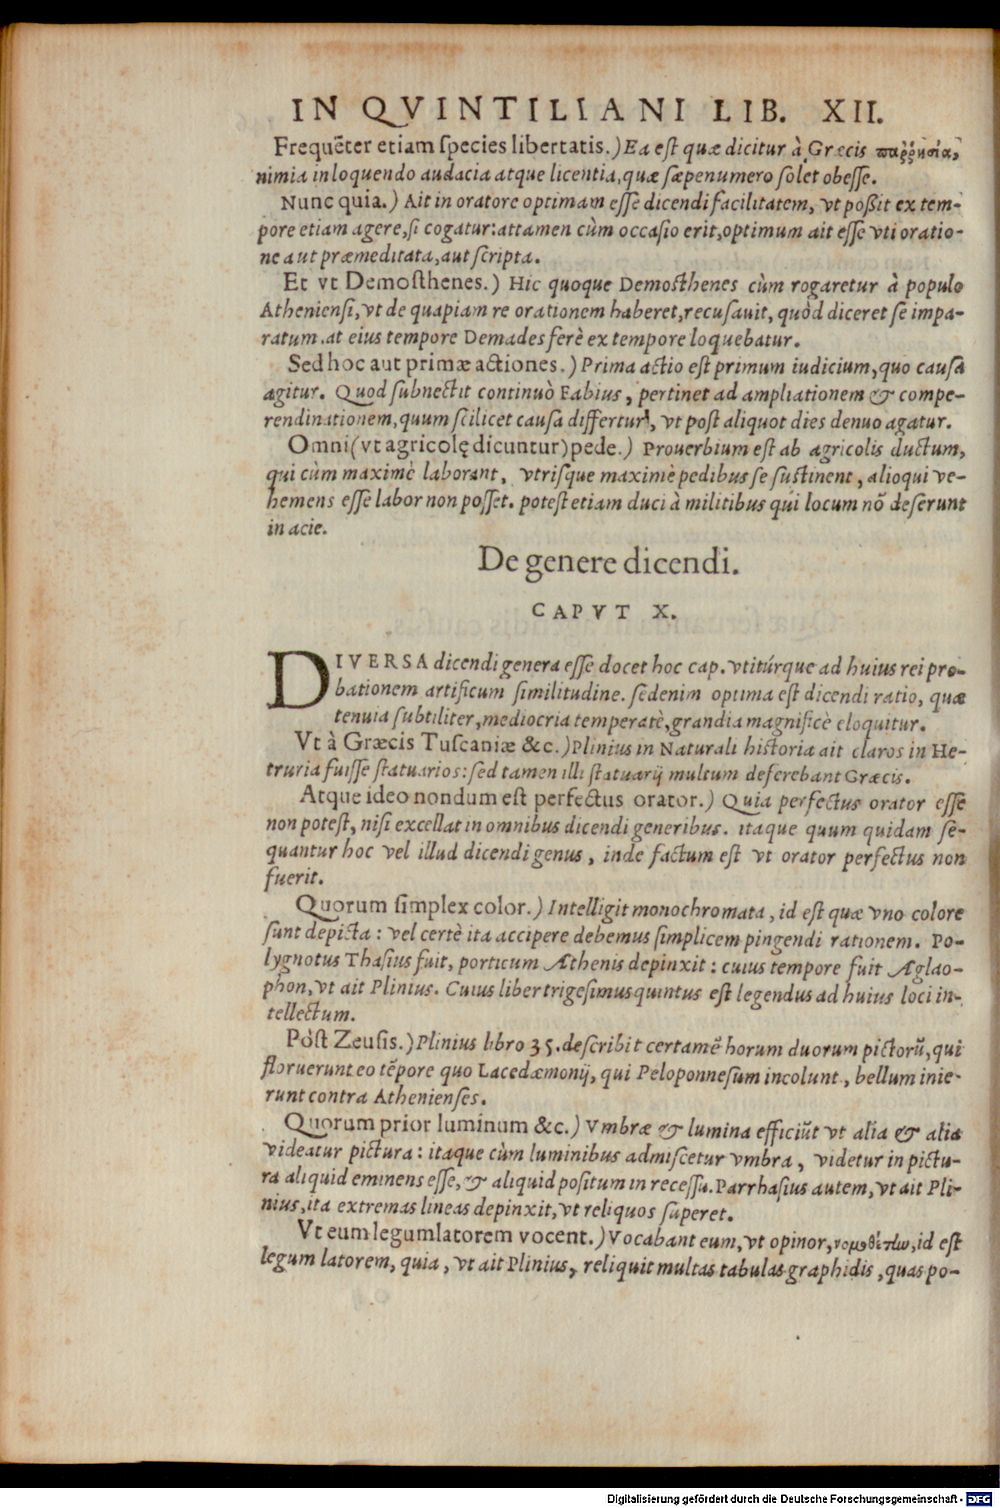 IN QVINTILIANI LIB. XII.
Frequẽter etiam species libertatis.) Ea est quæ dicitur à Græcis παῤῥησία,
nimia in loquendo audacia atque licentia, quæ sæpenumero solet obesse.
Nunc quia.) Ait in oratore optimam esse dicendi facilitatem, vt poßit ex tem-
pore etiam agere, si cogatur: attamen cùm occasio erit, optimum ait esse vti oratio-
ne aut præmeditata, aut scripta.
Et vt Demosthenes.) Hic quoque Demosthenes cùm rogaretur à populo
Atheniensi, vt de quapiam re orationem haberet, recusauit, quòd diceret se impa-
ratum. at eius tempore Demades ferè ex tempore loquebatur.
Sed hoc aut primæ actiones.) Prima actio est primum iudicium, quo causa
agitur. Quod subnectit continuò Fabius, pertinet ad ampliationem & compe-
rendinationem, quum scilicet causa differtur, vt post aliquot dies denuo agatur.
Omni (vt agricolę dicuntur) pede.) Prouerbium est ab agricolis ductum,
qui cùm maximè laborant, vtrisque maximè pedibus se sustinent, alioqui ve-
hemens esse labor non posset. potest etiam duci à militibus qui locum nõ deserunt
in acie.
De genere dicendi.
CAPVT X.
DIVERSA dicendi genera esse docet hoc cap. vtitúrque ad huius rei pro-
bationem artificum similitudine. sedenim optima est dicendi ratio, quæ
tenuia subtiliter, mediocria temperatè, grandia magnificè eloquitur.
Vt à Græcis Tuscaniæ &c.) Plinius in Naturali historia ait claros in He-
truria fuisse statuarios: sed tamen illi statuarij multum deferebant Græcis.
Atque ideo nondum est perfectus orator.) Quia perfectus orator esse
non potest, nisi excellat in omnibus dicendi generibus. itaque quum quidam se-
quantur hoc vel illud dicendi genus, inde factum est vt orator perfectus non
fuerit.
Quorum simplex color.) Intelligit monochromata, id est quæ vno colore
sunt depicta: vel certè ita accipere debemus simplicem pingendi rationem. Po-
lygnotus Thasius fuit, porticum Æthenis depinxit: cuius tempore fuit Æglao-
phon, vt ait Plinius. Cuius liber trigesimus quintus est legendus ad huius loci in-
tellectum.
Pòst Zeusis.) Plinius libro 35. describit certamẽ horum duorum pictorũ, qui
floruerunt eo tẽpore quo Lacedæmonij, qui Peloponnesum incolunt, bellum inie-
runt contra Athenienses.
Quorum prior luminum &c.) Vmbræ & lumina efficiũt vt alia & alia
videatur pictura: itaque cùm luminibus admiscetur vmbra, videtur in pictu-
ra aliquid eminens esse, & aliquid positum in recessu. Parrhasius autem, vt ait Pli-
nius, ita extremas lineas depinxit, vt reliquos superet.
Vt eum legumlatorem vocent.) Vocabant eum, vt opinor, νομοθέτἰω, id est
legum latorem, quia, vt ait Plinius, reliquit multas tabulas graphidis, quas po-
Digitalisierung gefördert durch die Deutsche Forschungsgemeinschaft - DFG